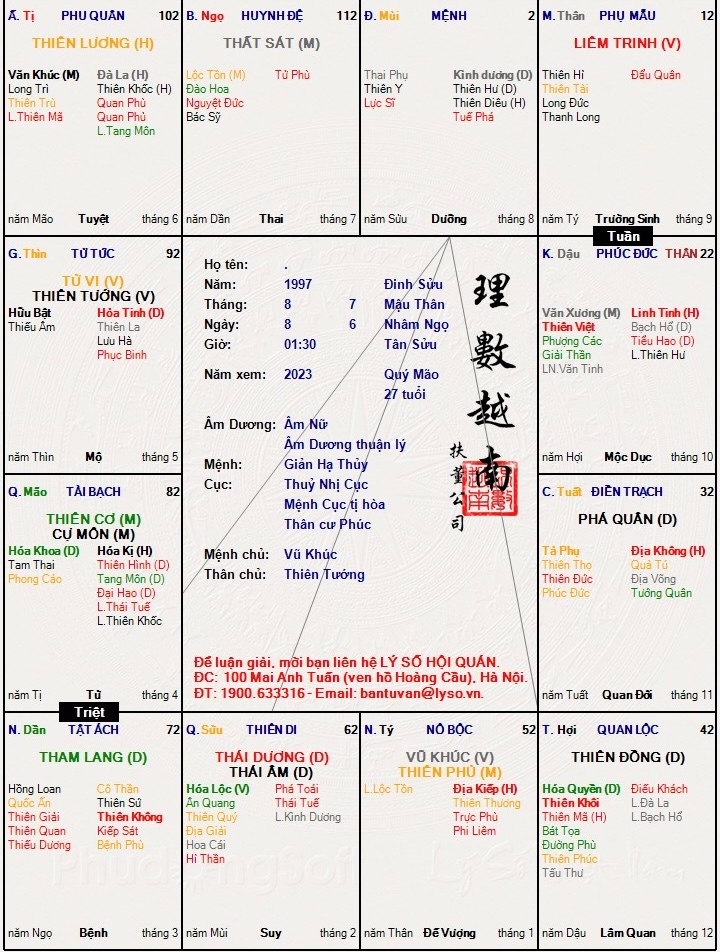 Ấ. Tị PHU QUÂN 102
THIÊN LƯƠNG (H)
Văn Khúc (M) Đà La (H)
Long Trì Thiên Khốc (H)
Thiên Trù Quan Phù
L.Thiên Mã Quan Phủ
L.Tang Môn
năm Mão Tuyệt tháng 6
B. Ngọ HUYNH ĐỆ 112
THẤT SÁT (M)
Lộc Tồn (M) Tử Phù
Đào Hoa
Nguyệt Đức
Bác Sỹ
năm Dần Thai tháng 7
Đ. Mùi MỆNH 2
Thai Phụ Kình dương (D)
Thiên Y Thiên Hư (D)
Lực Sĩ Thiên Diêu (H)
Tuế Phá
năm Sửu Dưỡng tháng 8
M. Thân PHỤ MẪU 12
LIÊM TRINH (V)
Thiên Hỉ Đẩu Quân
Thiên Tài
Long Đức
Thanh Long
năm Tý Trường Sinh tháng 9
Tuần
G. Thìn TỬ TỨC 92
TỬ VI (V)
THIÊN TƯỚNG (V)
Hữu Bật Hỏa Tinh (D)
Thiếu Âm Thiên La
Lưu Hà
Phục Binh
năm Thìn Mộ tháng 5
Họ tên: .
Năm: 1997 Đinh Sửu
Tháng: 8 7 Mậu Thân
Ngày: 8 6 Nhâm Ngọ
Giờ: 01:30 Tân Sửu
Năm xem: 2023 Quý Mão
27 tuổi
Âm Dương: Âm Nữ
Âm Dương thuận lý
Mệnh: Giản Hạ Thủy
Cục: Thuỷ Nhị Cục
Mệnh Cục tị hòa
Thân cư Phúc
Mệnh chủ: Vũ Khúc
Thân chủ: Thiên Tướng
理數越南
扶董公司
Để luận giải, mời bạn liên hệ LÝ SỐ HỘI QUÁN.
ĐC: 100 Mai Anh Tuấn (ven hồ Hoàng Cầu), Hà Nội.
ĐT: 1900.633316 - Email: bantuvan@lyso.vn.
K. Dậu PHÚC ĐỨC THÂN 22
Văn Xương (M) Linh Tinh (H)
Thiên Việt Bạch Hổ (D)
Phượng Các Tiểu Hao (D)
Giải Thần L.Thiên Hư
LN.Văn Tinh
năm Hợi Mộc Dục tháng 10
Q. Mão TÀI BẠCH 82
THIÊN CƠ (M)
CỰ MÔN (M)
Hóa Khoa (D) Hóa Kị (H)
Tam Thai Thiên Hình (D)
Phong Cáo Tang Môn (D)
Đại Hao (D)
L.Thái Tuế
L.Thiên Khốc
năm Tị Tử tháng 4
Triệt
C. Tuất ĐIỀN TRẠCH 32
PHÁ QUÂN (D)
Tả Phụ Địa Không (H)
Thiên Thọ Quả Tú
Thiên Đức Địa Võng
Phúc Đức Tướng Quân
năm Tuất Quan Đới tháng 11
N. Dần TẬT ÁCH 72
THAM LANG (D)
Hồng Loan Cô Thần
Quốc Ấn Thiên Sứ
Thiên Giải Thiên Không
Thiên Quan Kiếp Sát
Thiếu Dương Bệnh Phù
năm Ngọ Bệnh tháng 3
Q. Sửu THIÊN DI 62
THÁI DƯƠNG (D)
THÁI ÂM (D)
Hóa Lộc (V) Phá Toái
Ân Quang Thái Tuế
Thiên Quý L.Kình Dương
Địa Giải
Hoa Cái
Hỉ Thần
năm Mùi Suy tháng 2
N. Tý NÔ BỘC 52
VŨ KHÚC (V)
THIÊN PHỦ (M)
L.Lộc Tồn Địa Kiếp (H)
Thiên Thương
Trực Phù
Phi Liêm
năm Thân Đế Vượng tháng 1
T. Hợi QUAN LỘC 42
THIÊN ĐỒNG (D)
Hóa Quyền (D) Điếu Khách
Thiên Khôi L.Đà La
Thiên Mã (H) L.Bạch Hổ
Bát Tọa
Đường Phù
Thiên Phúc
Tấu Thư
năm Dậu Lâm Quan tháng 12